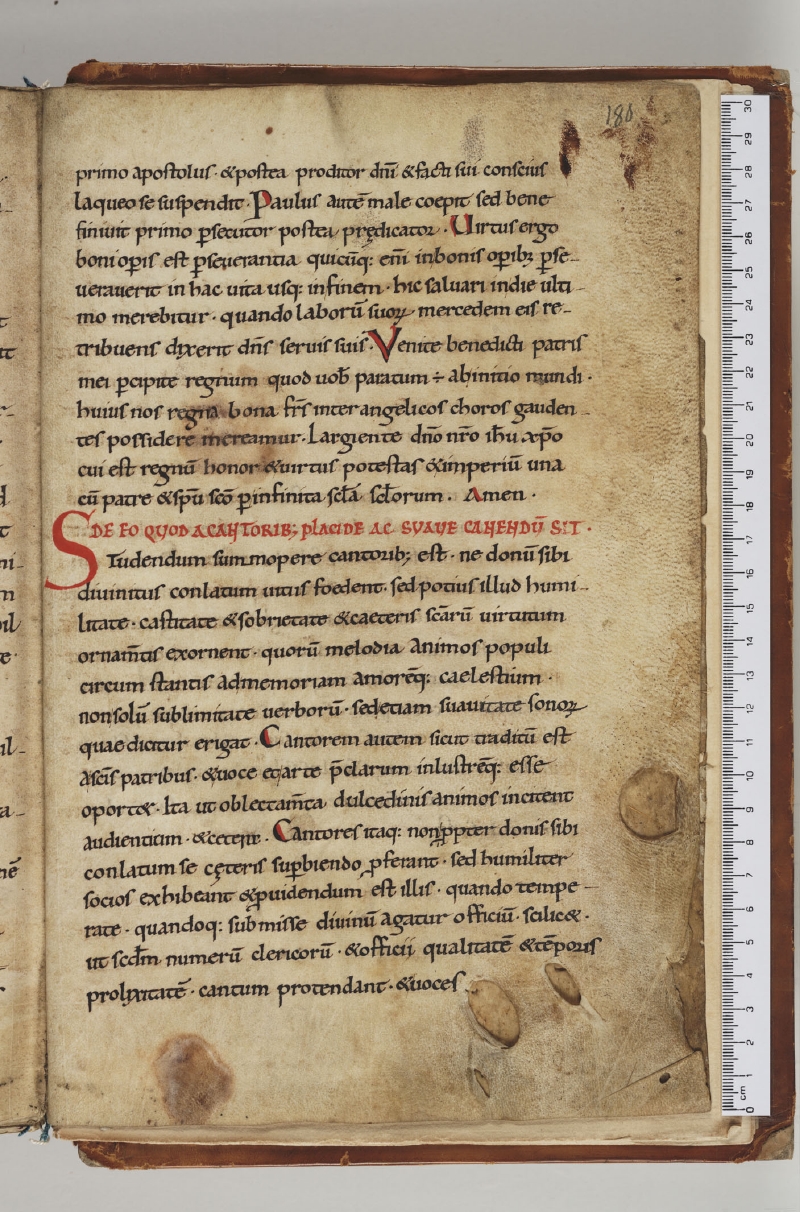 180
primo apostolus · &postea proditor dn̄i &facti sui conscius
laqueo se suspendit · Paulus autē male coepit sed bene
finiuit primo ꝑsecutor postea prędicator · Uirtus ergo
boni opis est ꝑseuerantia quicūq: eni in bonis opib; ꝑse-
uerauerit in hac uita usq: infinem · hic saluari indie ulti-
mo merebitur · quando laborū suoꝝ mercedem eis re-
tribuens dixerit dn̄s seruis suis · Venite benedicti patris
mei ꝑcipite regnum quod uob̄ paratum ÷ abinitio mundi ·
huius nos regna bona frs̄ inter angelicos choros gauden-
tes possidere mereamur · Largiente dn̄o nr̄o ih̄u xp̄o
cui est regnū honor &uirtus potestas &imperiū una
cū patre &spū scō ꝑ infinita scl̄a scl̄orum · Amen ·
DE EO QUOD A CANTORIB; PLACIDE AC SUAUE CANENDŪ SIT ·
STudendum summopere cantorib; est · ne donū sibi
diuinitus conlatum uitiis foedent · sed potius illud humi-
litate · castitate &sobrietate &caeteris scārū uirtutum
ornam̄tis exornent · quorū melodia animos populi
circum stantis admemoriam amorēq: caelestium ·
nonsolū sublimitate uerborū · sedetiam suauitate sonoꝝ
quae dicitur erigat · Cantorem autem sicut traditū est
asc̄is patribus · &uoce et arte p̄clarum inlustrēq: esse
oport& · Ita ut oblectam̄ta dulcedinis animos incitent
audientium · &cetere · Cantores itaq: non ꝓpter donis sibi
conlatum se cęteris supbiendo ꝓferant · sed humiliter
socios exhibeant &ꝓuidendum est illis · quando tempe-
rate · quandoq: submisse diuinū agatur officiū · scilic& ·
ut scdm̄ numerū clericorū · &officii qualitatē &tēporis
prolixitatē · cantum protendant · &uoces